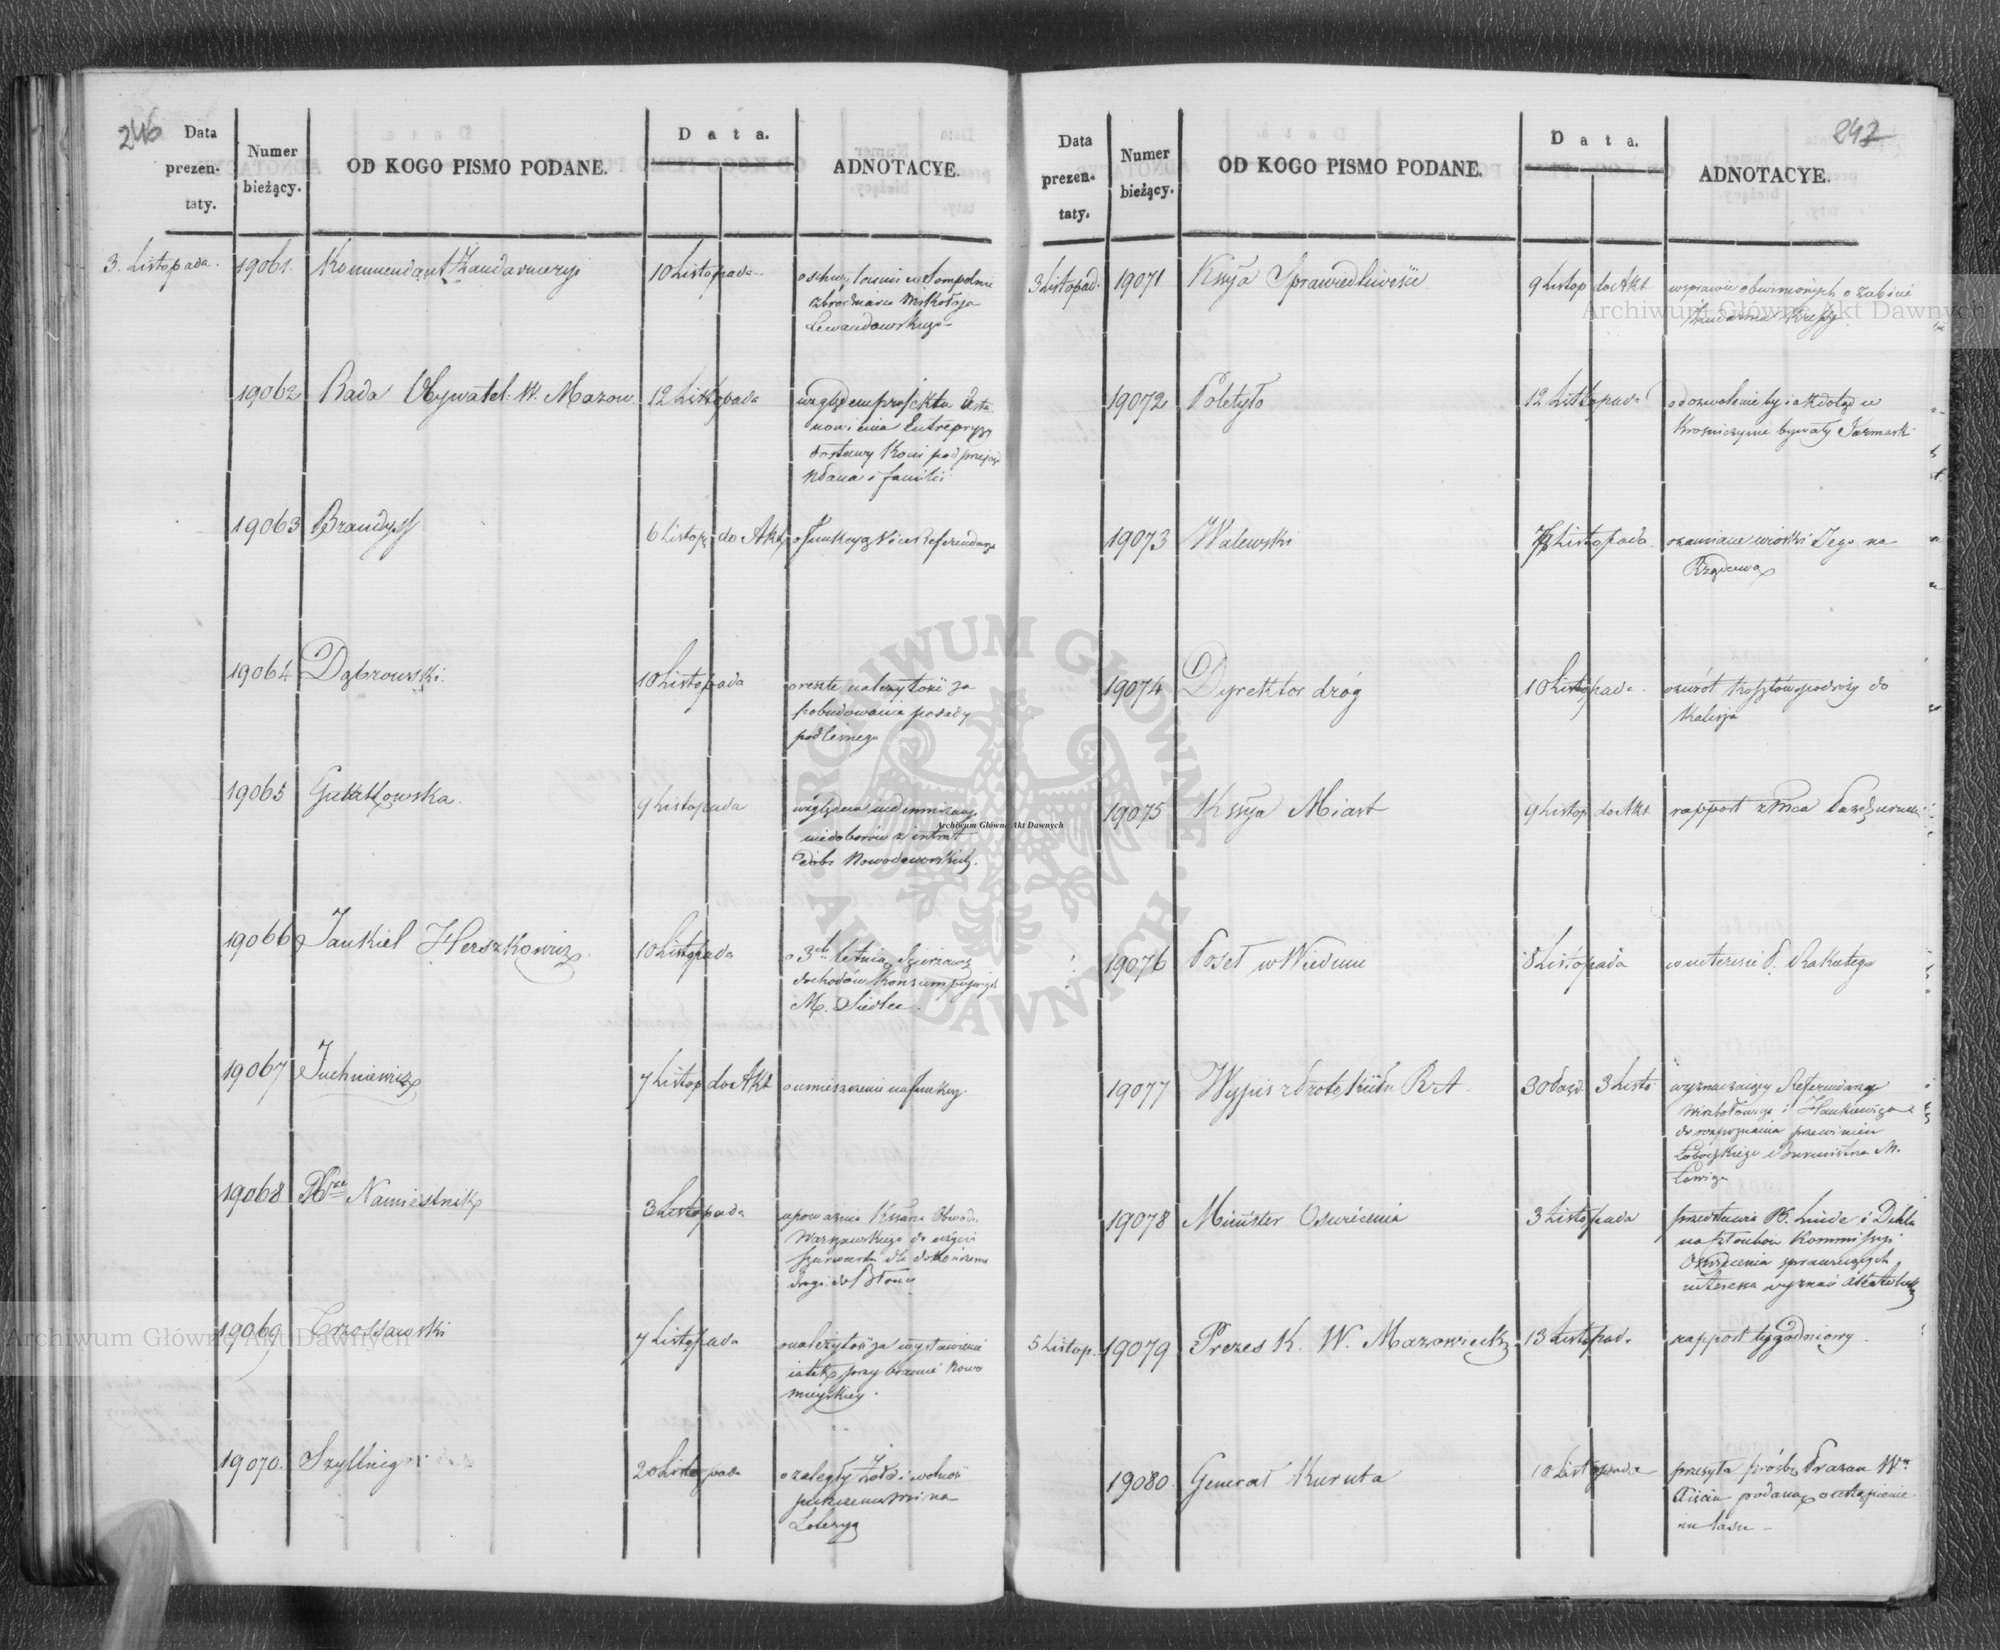 246
Data
prezen-
taty.
Numer
bieżący.
OD KOGO PISMO PODANE.
Data.
ADNOTACYE.
3. Listopada. 19061. Kommendant Żandarmeryi 10 Listopada
zbrodniarza Mikołaja
Lewandowskiego
19062 Rada Obywatel: W. Mazow. 12 Listopada względem projektu Usta-
nowienia Entrepryzy
dostawy Koni pod przejazd
i familii
19063 Brandyss 6 Listop. do Akt o funkcyą Vice Referendarza
19064 Dąbrowski. 10 Listopada o resztę należytości za
pobudowanie posady
podleśnego
19065 9 Listopada względem
niedoborów z intrat
dóbr Nowodworskich.
19066 Jankiel Herszkowicz. 10 Listopada o 3ch letnią dzierżawę
dochodów Konsumpcyjnych
M. Siedlec.
19067 Juchniewicz 7 Listop do Akt o umieszczenie na funkcyi
19068 Xże Namiestnik 3 Listopada upoważnia Kssarza Obwodu
Warszawskiego do użycia
szarwarku dla dokończenia
drogi do Błonia
19069 7 Listopada o należytość za wystawienie
iatek przy bramie Nowo
mieyskiey.
19070. Szylling 20 Listopada o zaległy żołd i wolność
na
Loteryą
247
Data
prezen-
taty.
Numer
bieżący.
OD KOGO PISMO PODANE.
Data.
ADNOTACYE.
3 Listopad. 19071 Kssya Sprawiedliwości 9 Listop do Akt w sprawie obwinionych o zabicie
Żandarma
19072 Poletyło 12 Listopada o dozwolenie by iak dotąd w
Kraśniczynie bywały Jarmarki
19073 Walewski 7 Listopada o zamianę wioski Jego na
Rządową
19074 Dyrektor dróg 10 Listopada. o zwrot kosztów podróży do
Kalisza
19075 Kssya Miast 9 Listop do Akt rapport z Mca Października
19076 Poseł w Wiedniu 8 Listopada w interesie P.
19077 Wypis z Protokółu R.A. 30 Paźd. 3 Listo. wyznaczaiący Referendarzy
i Hankiewicza
do rozpoznania przewinień
Burmistrza M.
19078 Minister Oświecenia 3 Listopada przedstawia PP. Linde i
na członków Kommissyi
Oświecenia
interessa wyznań
5 Listop. 19079 Prezes K. W. Mazowieck 13 Listopad. rapport tygodniowy.
19080. Generał Kuruta 10 Listopada przesyła prośbę Prezesa
podaną o ustąpienie
mu lasu
Archiwum Główne Akt Dawnych
Archiwum Główne Akt Dawnych
Archiwum Główne Akt Dawnych
ARCHIWUM GŁÓWNE AKT DAWNYCH